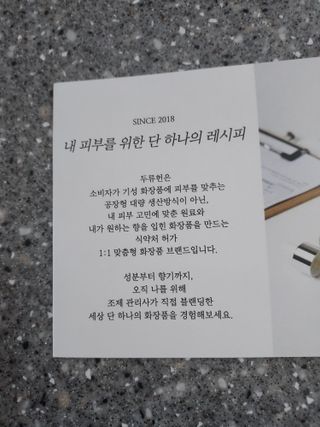 SINCE 2018
내 피부를 위한 단 하나의 레시피
두류헌은
소비자가 기성 화장품에 피부를 맞추는
공장형 대량 생산방식이 아닌,
내 피부 고민에 맞춘 원료와
내가 원하는 향을 입힌 화장품을 만드는
식약처 허가
1:1 맞춤형 화장품 브랜드입니다.
성분부터 향기까지,
오직 나를 위해
조제 관리사가 직접 블렌딩한
세상 단 하나의 화장품을 경험해보세요.